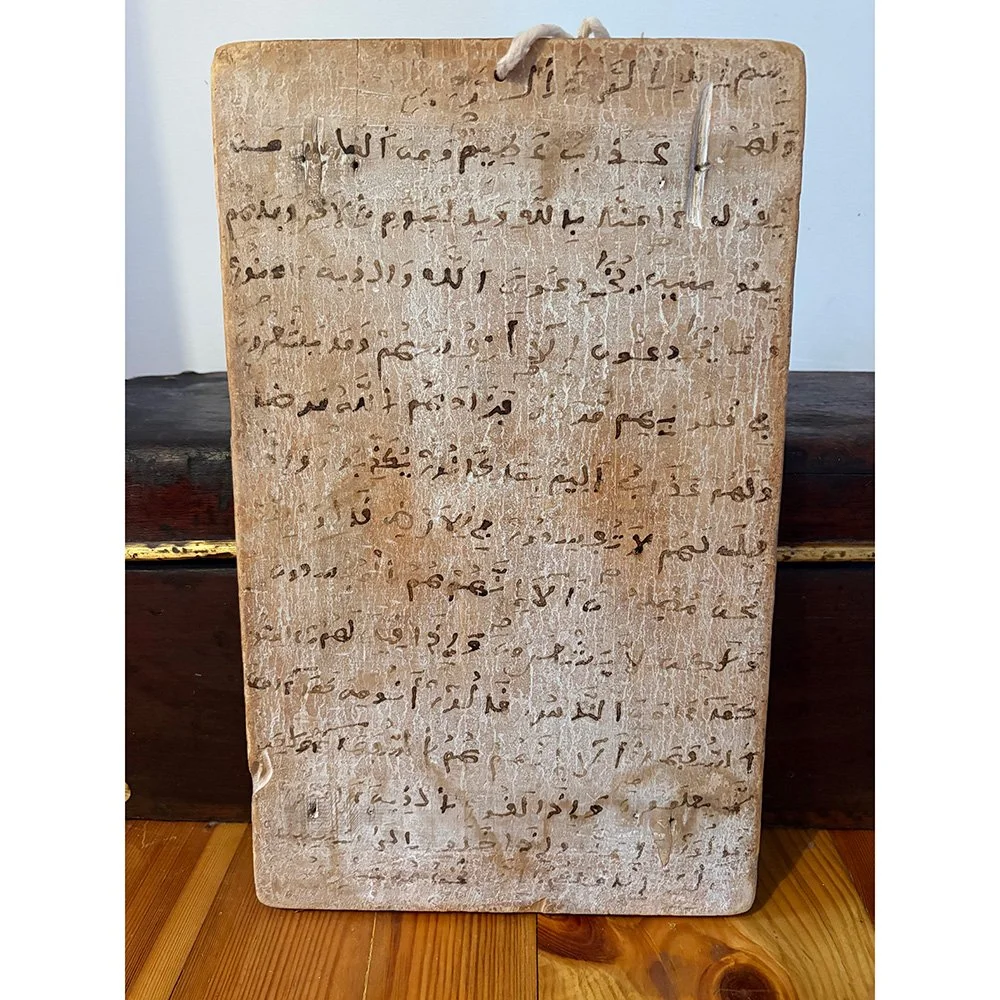 بسم الله الر
ولهم عذاب عظيم ومن الناس من
يقول ءامنا بالله وباليوم الاخر وما هم
بمومنين يخدعون الله والذين ءامنوا
وما يخدعون إلا أنفسهم وما يشعرون
في قلوبهم مرض فزادهم الله مرضا
ولهم عذاب اليم بما كانوا يكذبون وإذا
قيل لهم لا تفسدوا في الارض قالوا إنما
نحن مصلحون ألا إنهم هم المفسدون
ولكن لا يشعرون وإذا قيل لهم ءامنوا
كما ءامن الناس قالوا أنومن كما ءامن
السفهاء ألا إنهم هم السفهاء ولكن
لا يعلمون وإذا لقوا الذين ءامنوا
قالوا ءامنا وإذا خلوا إلى